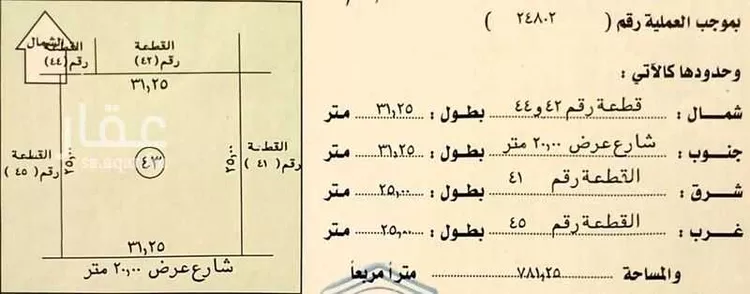 بموجب العملية رقم ( ٢٤٨٠٢ )
وحدودها كالآتي :
شمال : قطعة رقم ٤٢ و ٤٤ بطول : ٣١,٢٥ متر
جنوب : شارع عرض ٢٠,٠٠ متر بطول : ٣١,٢٥ متر
شرق : القطعة رقم ٤١ بطول : ٢٥,٠٠ متر
غرب : القطعة رقم ٤٥ بطول : ٢٥,٠٠ متر
والمساحة ٧٨١,٢٥ متراً مربعاً
الشمال
القطعة
رقم (٤٢)
القطعة
رقم (٤٤)
٣١,٢٥
القطعة
رقم ( ٤١ )
٢٥,٠٠
٤٣
عقار
٢٥,٠٠
القطعة
رقم ( ٤٥ )
٣١,٢٥
شارع عرض ٢٠,٠٠ متر